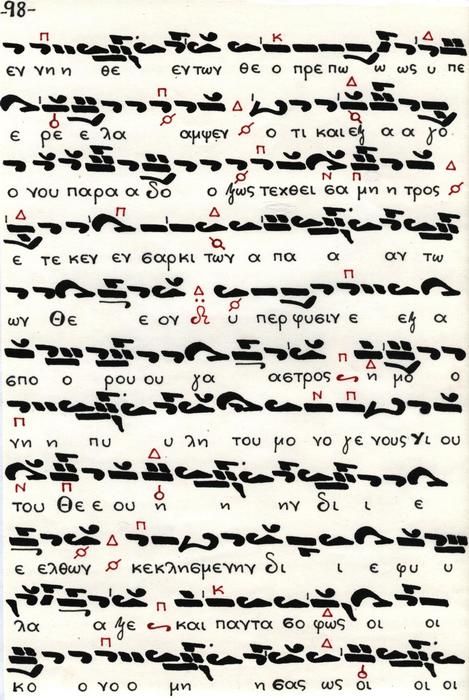 -98-
εν νη η θε εν των θε ο πρε πω ω ως υ πε
ε ρε ε λα αμψεν ο τι και εξ α α γο
ο νου παρα α δο ο ξως τεχθει σα μη η τρος
ε τε κεν εν σαρκι των α πα α αν τω
ων Θε ε ον υ περ φυσιν ε εξ α
σπο ο ρου ου γα αστρος η μο ο
νη η πυ υ λη του μο νο γε νους Υι ου
του Θε ε ου η η ην δι ι ε
ε ελθων κεκλησμενην δι ι ε φυ υ
λα α ξε και παντα σο φως οι οι
κο ο νο ο μη η σας ως οι οι